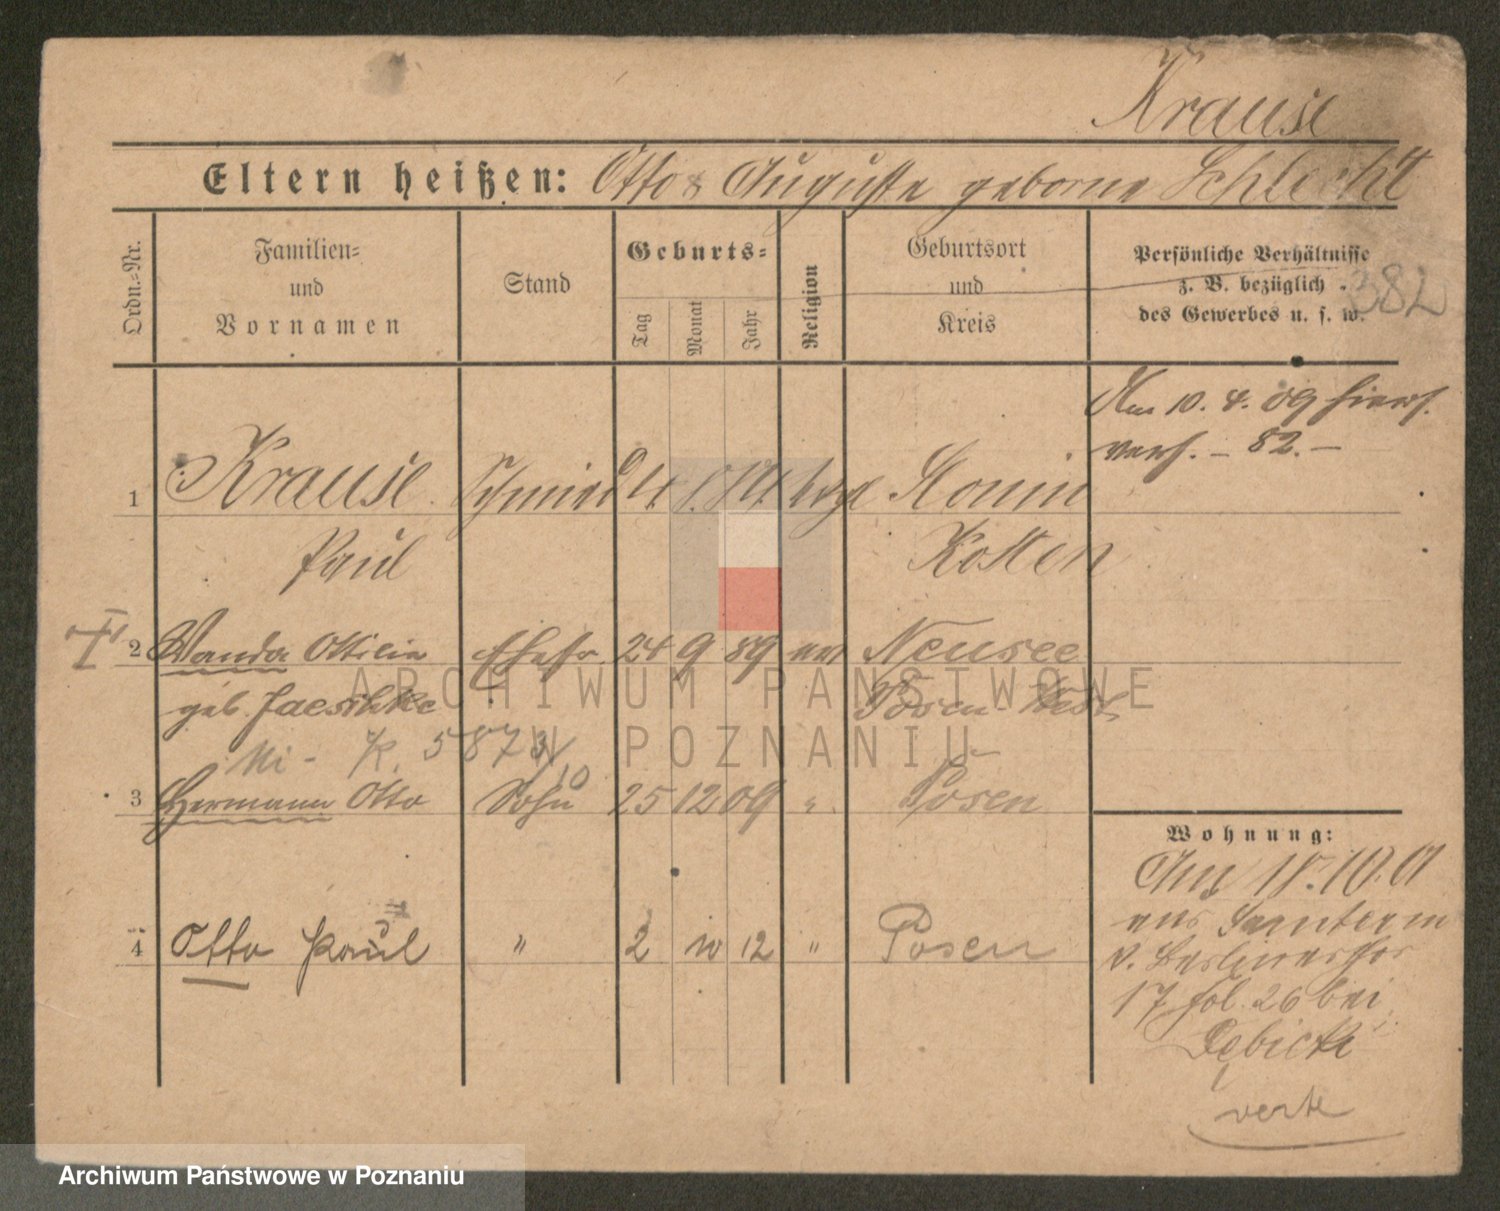 Krause
Eltern heißen: Otto & Auguste geborne Schlecht
Ordn.=Nr.
Familien=
und
Vornamen
Stand
Geburts=
Tag
Monat
Jahr
Religion
Geburtsort
und
Kreis
Persönliche Verhältnisse
z. B. bezüglich
des Gewerbes u. s. w.
382
Am 10. 4. 09 hiers.
verh. – 82. –
1 Krause Schmied
Paul Kosten
2 Wanda Ottilie Ehefr. 24 9 89 Neusee
geb. Jaeschke Posen West
K. 5873/10
3 Hermann Otto Sohn 25 12 09 " Posen
4 Otto Paul " 2 10 12 " Posen
Wohnung:
Am
aus
v. Berlinerthor
17 fol. 26 bei
Debicki
verte
ARCHIWUM PAŃSTWOWE
W POZNANIU
Archiwum Państwowe w Poznaniu